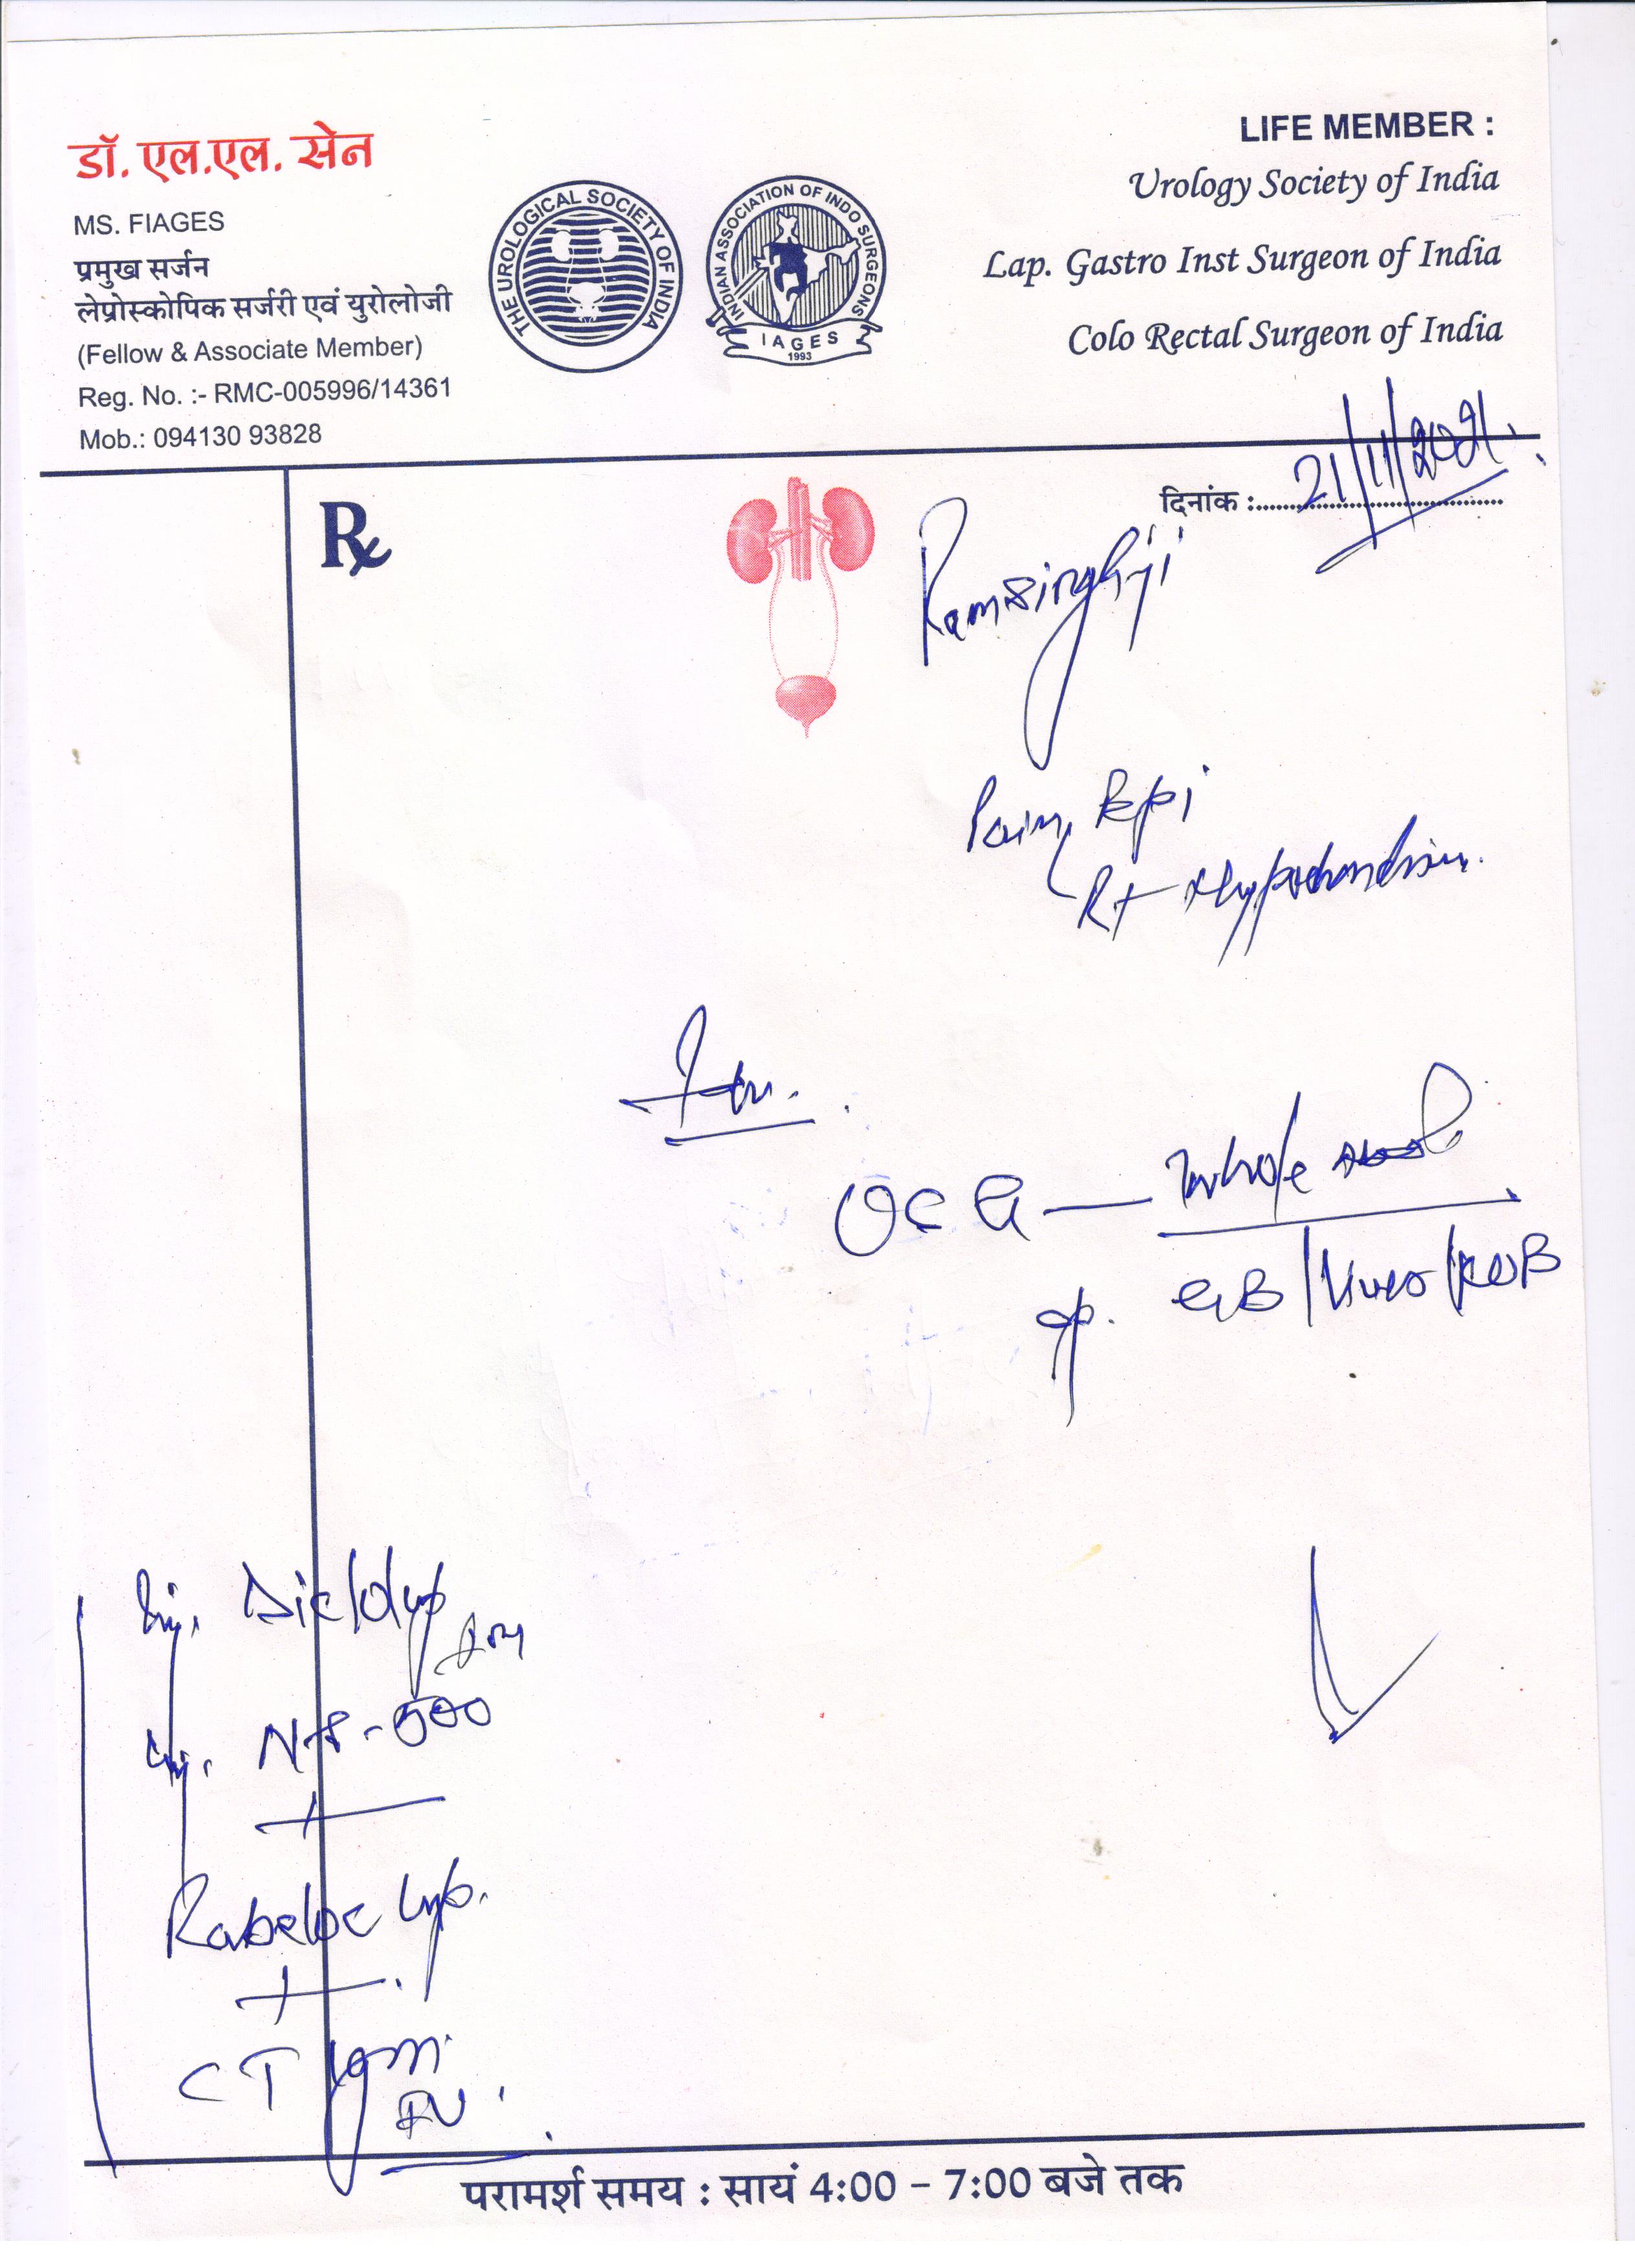 डॉ. एल.एल. सेन
MS. FIAGES
प्रमुख सर्जन
लेप्रोस्कोपिक सर्जरी एवं युरोलोजी
(Fellow & Associate Member)
Reg. No. :- RMC-005996/14361
Mob.: 094130 93828
THE UROLOGICAL SOCIETY OF INDIA
INDIAN ASSOCIATION OF INDO SURGEONS
IAGES
1993
LIFE MEMBER :
Urology Society of India
Lap. Gastro Inst Surgeon of India
Colo Rectal Surgeon of India
दिनांक :21/11/2021
Rx
Ramsinghji
Pain Epi
Rt Hypochondrium
whole
GB/Liver/KUB
Inj.
Inj. 500
+
Rabeloc
+
CT 1gm
IV
परामर्श समय : सायं 4:00 – 7:00 बजे तक